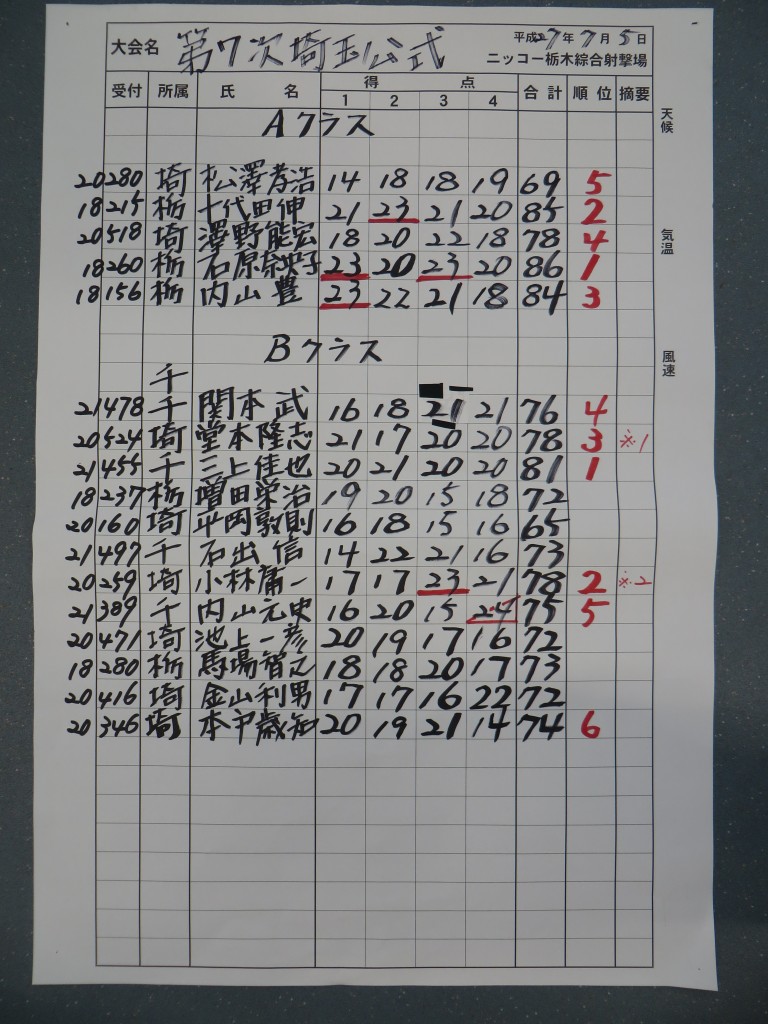 大会名 第7次埼玉公式 平成27年7月5日
ニッコー栃木綜合射撃場
受付 所属 氏名 得点 合計 順位 摘要
1 2 3 4
天候
気温
風速
Aクラス
20280 埼 松澤孝浩 14 18 18 19 69 5
18215 栃 十代田伸 21 23 21 20 85 2
20518 埼 澤野能宏 18 20 22 18 78 4
18260 栃 石原奈央子 23 20 23 20 86 1
18156 栃 内山豊 23 22 21 18 84 3
Bクラス
千
21478 千 関本武 16 18 21 21 76 4
20524 埼 堂本隆志 21 17 20 20 78 3 ※1
21455 千 三上佳也 20 21 20 20 81 1
18237 栃 増田栄治 19 20 15 18 72
20160 埼 平岡敦則 16 18 15 16 65
21497 千 石出信 14 22 21 16 73
20259 埼 小林庸一 17 17 23 21 78 2 ※2
21389 千 内山元史 16 20 15 24 75 5
20471 埼 池上一彦 20 19 17 16 72
18280 栃 馬場智之 18 18 20 17 73
20416 埼 金山利男 17 17 16 22 72
20346 埼 20 19 21 14 74 6